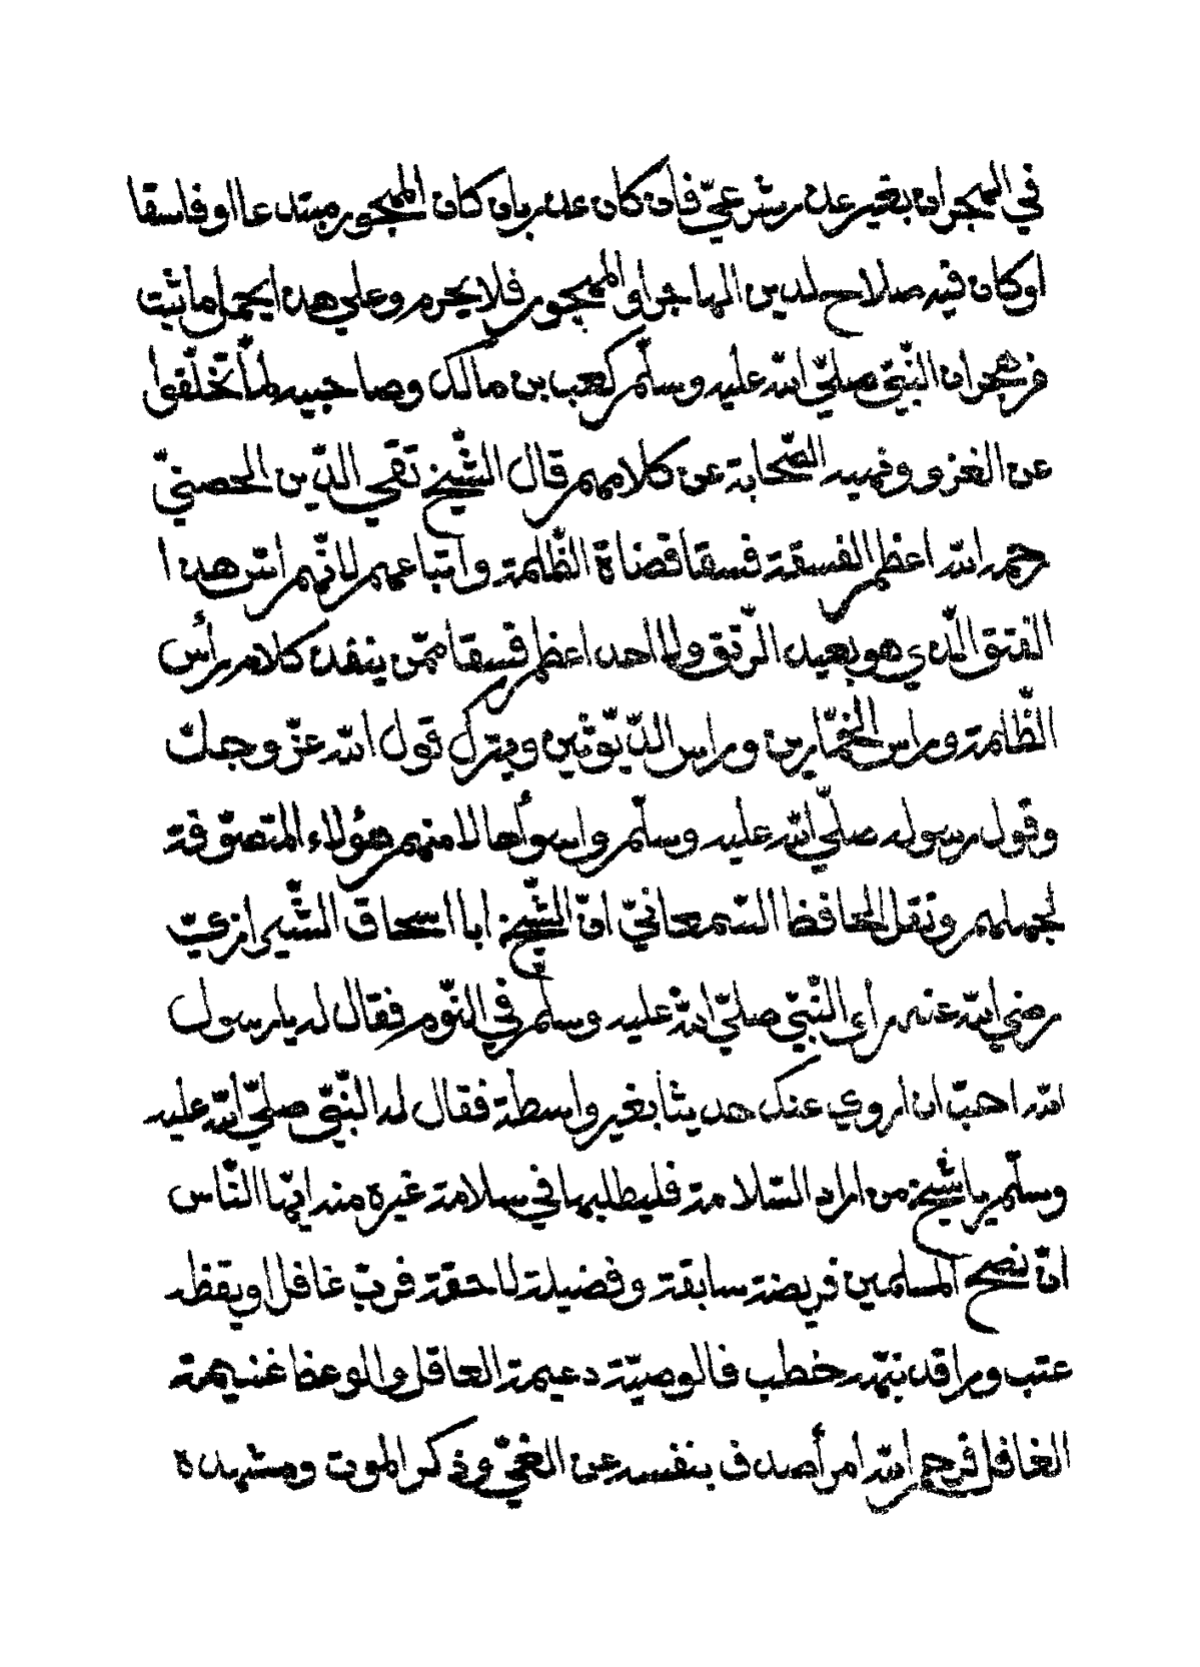 في الهجران بغير عذر شرعيّ فان كان عذر بان كان المهجور مبتدعا او فاسقا
او كان فيه صلاح لدين الهاجر او المهجور فلا يحرم وعلي هذا يحمل ما ثبت
من هجران النّبيّ صلّي اللّه عليه وسلّم كعب بن مالك وصاحبيه لمّا تخلّفوا
عن الغزو ونهيه الصّحابة عن كلامهم قال الشّيخ تقي الدّين الحصنيّ
رحمه اللّه اعظم الفسقة فسقا قضاة الظّلمة واتباعهم لانّهم اسّ هذا
الفتق الّذي هو بعيد الرّتق ولا احد اعظم فسقا ممّن ينفذ كلام رأس
الظّلمة وراس الخمّارين وراس الدّيّوثين ويترك قول اللّه عزّ وجلّ
وقول رسوله صلّي اللّه عليه وسلّم واسوأحالا منهم هؤلاء المتصوّفة
لجهلهم ونقل الحافظ السّمعانيّ انّ الشّيخ ابا اسحاق الشّيرازيّ
رضي اللّه عنه رأى النّبيّ صلّي اللّه عليه وسلّم في النّوم فقال له يا رسول
اللّه احبّ ان اروي عنك حديثا بغير واسطة فقال له النّبيّ صلّي اللّه عليه
وسلّم يا شيخ من اراد السّلامة فليطلبها في سلامة غيره منه ايّها النّاس
انّ نصح المسلمين فريضة سابقة وفضيلة لاحقة فربّ غافل اويقظه
عتب وراقد نبّهه خطب فالوصيّة دعيمة العاقل والوعظ غنيمة
الغافل فرحم اللّه امرأصدف بنفسه عن الغيّ وذكر الموت ومشهده